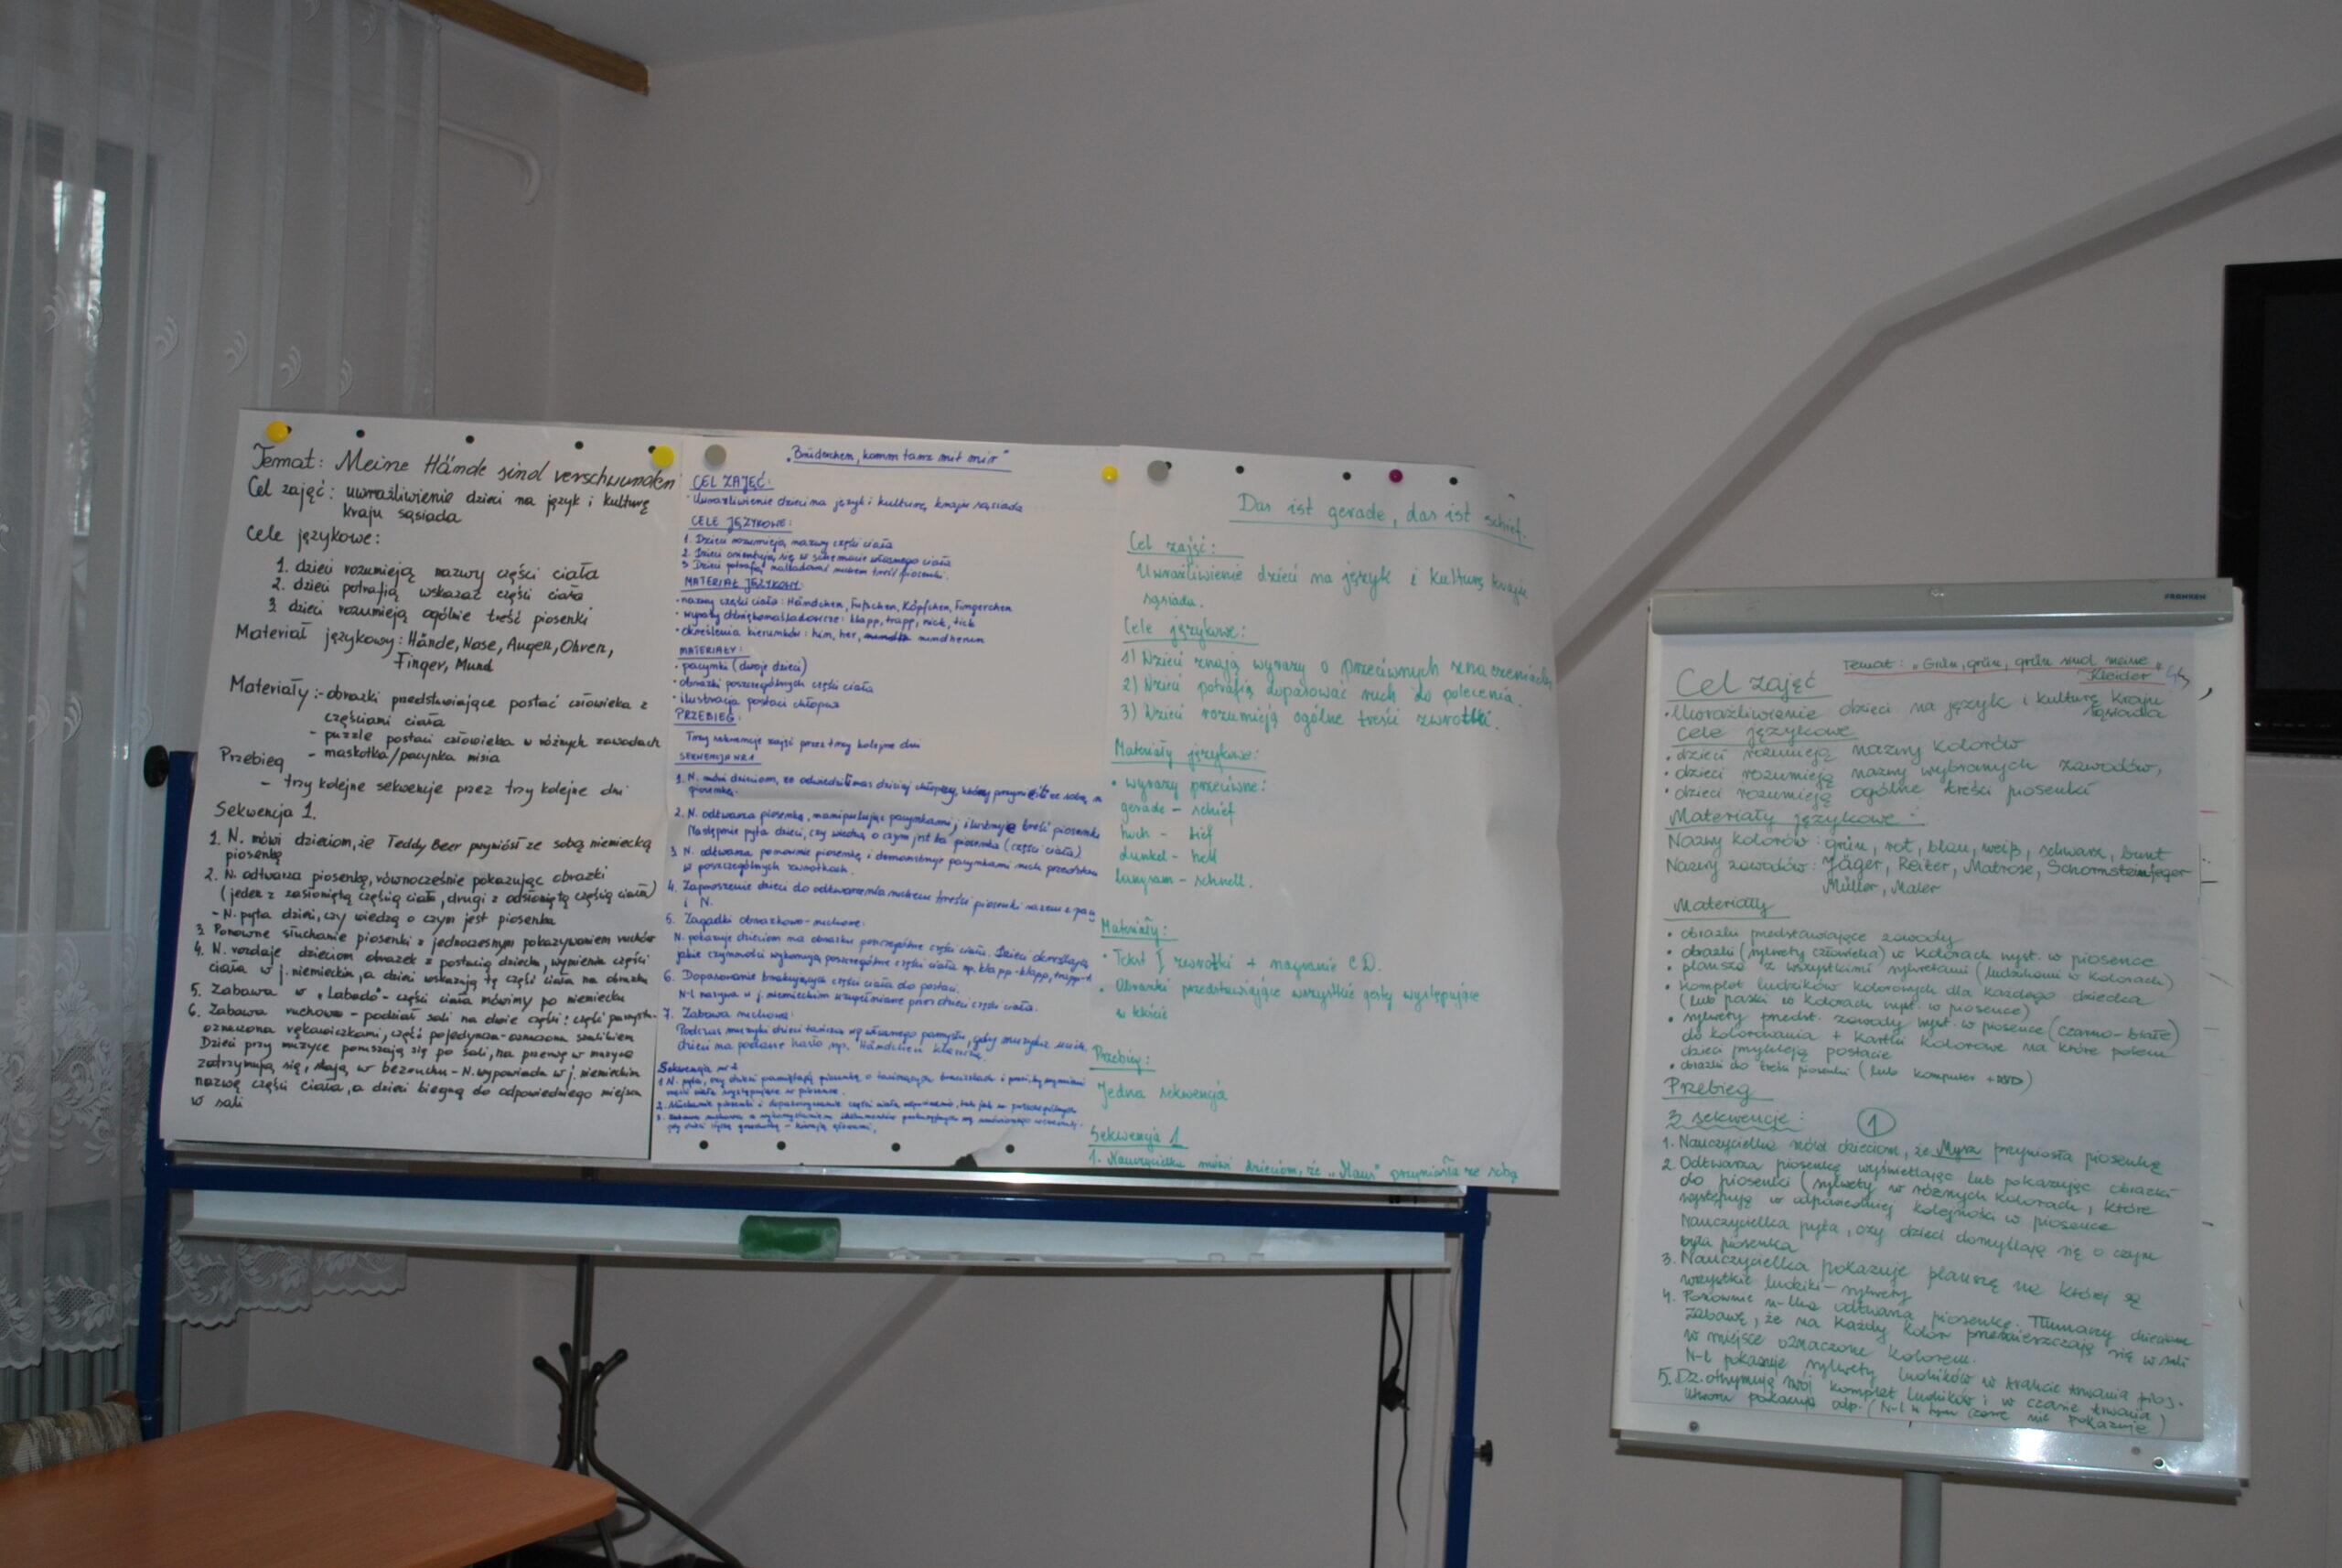 Temat: Meine Hände sind verschwunden
Cel zajęć: uwrażliwienie dzieci na język i kulturę
kraju sąsiada
Cele językowe:
1. dzieci rozumieją nazwy części ciała
2. dzieci potrafią wskazać części ciała
3. dzieci rozumieją ogólnie treść piosenki
Materiał językowy: Hände, Nase, Augen, Ohren,
Finger, Mund
Materiały: - obrazki przedstawiające postać człowieka z
częściami ciała
- puzzle postaci człowieka w różnych zawodach
- maskotka/pacynka misia
Przebieg
- trzy kolejne sekwencje przez trzy kolejne dni
Sekwencja 1.
1. N. mówi dzieciom, że Teddy Beer przyniósł ze sobą niemiecką
piosenkę
2. N. odtwarza piosenkę, równocześnie pokazując obrazki
(jeden z zasłoniętą częścią ciała, drugi z odsłoniętą częścią ciała)
- N. pyta dzieci, czy wiedzą o czym jest piosenka
3. Ponowne słuchanie piosenki z jednoczesnym pokazywaniem ruchów
4. N. rozdaje dzieciom obrazek z postacią dziecka, wymienia części
ciała w j. niemieckim, a dzieci wskazują tę część ciała na obrazku
5. Zabawa w "Labado" - części ciała mówimy po niemiecku
6. Zabawa ruchowa - podział sali na dwie części: część
oznaczona rękawiczkami, część pojedyncza - oznaczona szalikiem
Dzieci przy muzyce poruszają się po sali, na przerwę w muzyce
zatrzymują się, stają w bezruchu - N. wypowiada w j. niemieckim
nazwę części ciała, a dzieci biegną do odpowiedniego miejsca
w sali
"Brüderchen, komm tanz mit mir"
CEL ZAJĘĆ:
Uwrażliwienie dzieci na język i kulturę kraju sąsiada
CELE JĘZYKOWE:
1. Dzieci rozumieją nazwy części ciała
2. Dzieci orientują się w schemacie własnego ciała
3. Dzieci potrafią naśladować ruchem treść piosenki.
MATERIAŁ JĘZYKOWY:
• nazwy części ciała: Händchen, Füßchen, Köpfchen, Fingerchen
• wyrazy dźwiękonaśladowcze: klapp, trapp, nick, tick
• określenia kierunków: hin, her, rundherum
MATERIAŁY:
• pacynki (dwoje dzieci)
• obrazki poszczególnych części ciała
• ilustracja postaci chłopca
PRZEBIEG:
Trzy sekwencje zajęć przez trzy kolejne dni
SEKWENCJA NR 1
1. N. mówi dzieciom, że odwiedził nas dzisiaj chłopczyk, który przyniósł ze sobą
piosenkę.
2. N. odtwarza piosenkę, manipulując pacynkami, ilustruje treść piosenki
Następnie pyta dzieci, czy wiedzą o czym jest ta piosenka (części ciała).
3. N. odtwarza ponownie piosenkę i demonstruje pacynkami ruch
w poszczególnych zwrotkach.
4. Zaproszenie dzieci do odtwarzania ruchem treści piosenki razem z
i N.
5. Zagadki obrazkowo-ruchowe.
N. pokazuje dzieciom na obrazku poszczególne części ciała. Dzieci określają
jakie czynności wykonują poszczególne części ciała np. klapp-klapp, trapp-t
6. Dopasowanie brakujących części ciała do postaci.
N-l nazywa w j. niemieckim uzupełniane przez dzieci części ciała.
7. Zabawa ruchowa:
Podczas muzyki dzieci tańczą wg własnego pomysłu, gdy muzyka
dzieci na podane hasło np. Händchen klaszczą.
Sekwencja nr
1. N. pyta, czy dzieci pamiętają piosenkę o tańczących
Das ist gerade, das ist schief.
Cel zajęć:
Uwrażliwienie dzieci na język i kulturę kraju
sąsiada.
Cele językowe:
1) Dzieci znają wyrazy o przeciwnych znaczeniach
2) Dzieci potrafią dopasować ruch do polecenia.
3) Dzieci rozumieją ogólne treści zwrotki.
Materiały językowe:
• wyrazy przeciwne:
gerade - schief
hoch - tief
dunkel - hell
langsam - schnell.
Materiały:
• Tekst I zwrotki + nagranie CD.
• Obrazki przedstawiające wszystkie gesty występujące
w tekście
Przebieg:
Jedna sekwencja
Sekwencja 1
1. Nauczycielka mówi dzieciom, że "Maus" przyniosła ze sobą
FRANKEN
Temat: "Grün, grün, grün sind meine
Kleider"
Cel zajęć
• Uwrażliwienie dzieci na język i kulturę kraju
sąsiada
Cele językowe
• dzieci rozumieją nazwy kolorów
• dzieci rozumieją nazwy wybranych zawodów,
• dzieci rozumieją ogólne treści piosenki
Materiały językowe:
Nazwy kolorów: grün, rot, blau, weiß, schwarz, bunt
Nazwy zawodów: Jäger, Reiter, Matrose, Schornsteinfeger
Müller, Maler
Materiały
• obrazki przedstawiające zawody
• obrazki (sylwety człowieka) w kolorach wyst. w piosence
• plansza z wszystkimi sylwetami (ludzikami w kolorach)
• komplet ludzików kolorowych dla każdego dziecka
(lub paski w kolorach wyst. w piosence)
• sylwety przedst. zawody wyst. w piosence (czarno-białe)
do kolorowania + kartki kolorowe na które potem
dzieci przykleją postacie
• obrazki do treści piosenki (lub komputer + DVD)
Przebieg
3 sekwencje: 1
1. Nauczycielka mówi dzieciom, że Mysz przyniosła piosenkę
2. Odtwarza piosenkę wyświetlając lub pokazując obrazki
do piosenki (sylwety w różnych kolorach, które
występują w odpowiedniej kolejności w piosence
Nauczycielka pyta, czy dzieci domyślają się o czym
była piosenka
3. Nauczycielka pokazuje planszę na której są
wszystkie ludziki - sylwety
4. Ponownie n-lka odtwarza piosenkę. Tłumaczy dzieciom
zabawę, że na każdy kolor przemieszczają się w sali
w miejsce oznaczone kolorem.
N-l pokazuje sylwety ludzików w trakcie trwania pios.
5. Dz. otrzymują swój komplet ludzików i w czasie trwania
utworu pokazują odp. (N-l w tym czasie nie pokazuje)